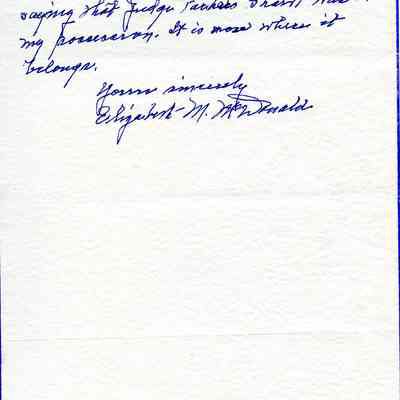 saying that Judge
my possession. It is now where it
belongs.
Yours sincerely
Elizabeth M. McDonald